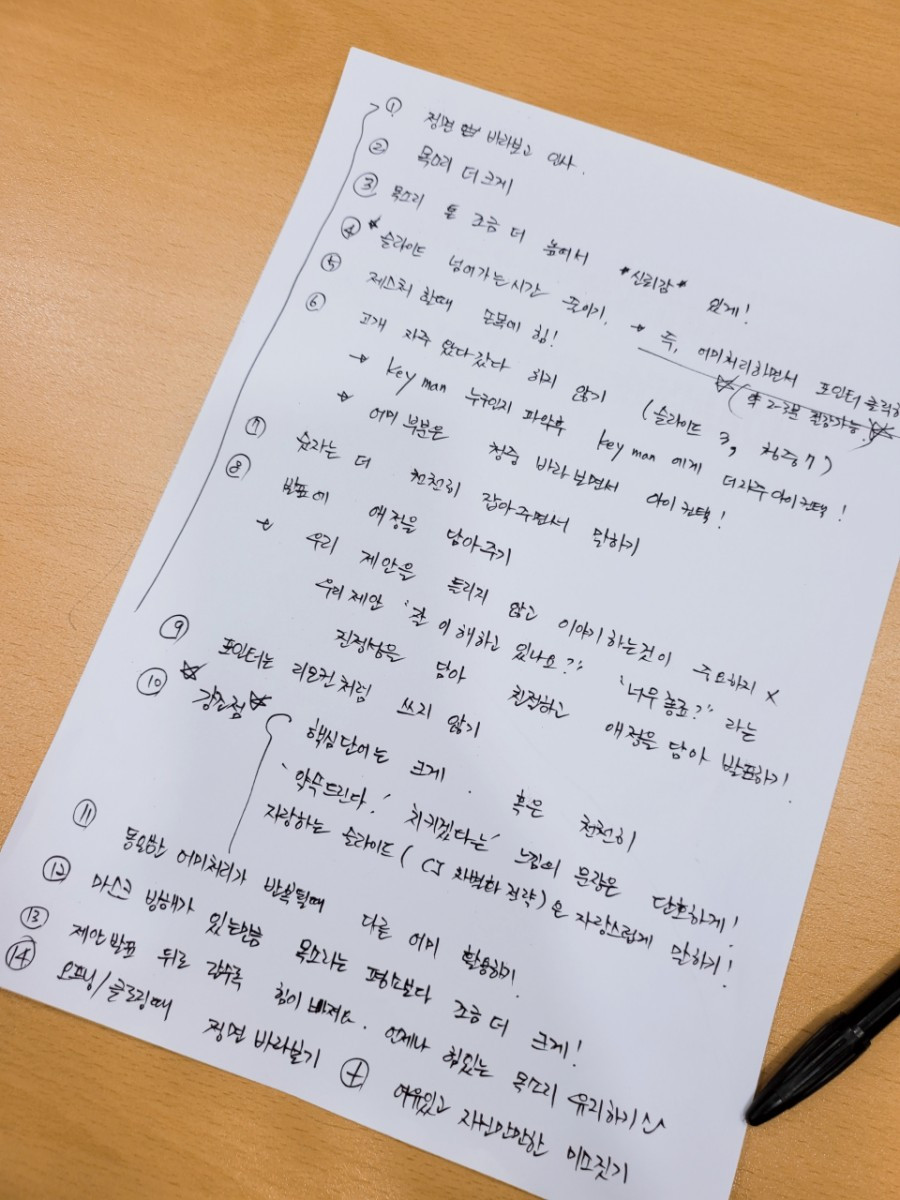 ① 정면 바라보고 인사.
② 목소리 더 크게
③ 목소리 톤 조금 더 높여서 *신뢰감* 있게!
④ *슬라이드 넘어가는 시간 줄이기. → 즉, 어미처리하면서 포인터 클릭
☆(약 2-3분 절감가능.)☆
⑤ 제스처 할때 손목에 힘!
⑥ 고개 자주 왔다갔다 하지 않기 (슬라이드 3, 청중 7)
→ key man 누구인지 파악후 key man 에게 더자주 아이컨택!
→ 어미 부분은 청중 바라보면서 아이컨택!
⑦ 숫자는 더 천천히 잡아주면서 말하기
⑧ 발표에 애정을 담아주기
→ 우리 제안을 틀리지 않고 이야기하는것이 중요하지 X
우리 제안 '잘 이해하고 있나요?' '너무 좋죠?' 라는
진정성을 담아 친절하고 애정을 담아 발표하기.
⑨ 포인터는 리모컨처럼 쓰지 않기
⑩ ☆강조점☆ 핵심단어는 크게. 혹은 천천히
'약속드린다!' '지키겠다는' 느낌의 문장은 단호하게!
자랑하는 슬라이드 (CJ 차별화 전략)은 자랑스럽게 말하기!
⑪ 동일한 어미처리가 반복될때 다른 어미 활용하기.
⑫ 마스크 방해가 있는만큼 목소리는 평소보다 조금 더 크게!
⑬ 제안발표 뒤로 갈수록 힘이 빠져요. 언제나 힘있는 목소리 유지하기 ^^
⑭ 오프닝/클로징때 정면 바라보기 ⊕ 여유있고 자신만만한 미소짓기